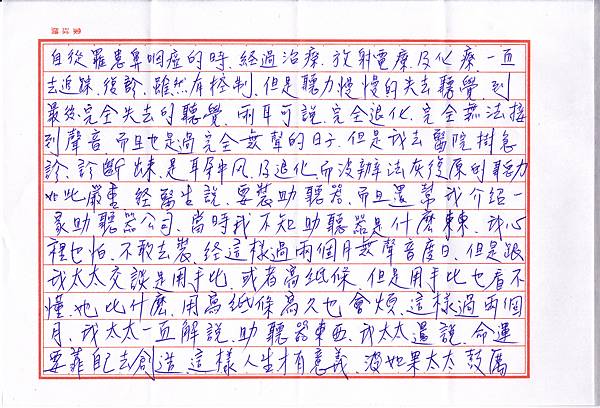 自從罹患鼻咽症的時、經過治療、放射電療、及化療、一直
去追踪、復診、雖然有控制、但是聽力慢慢的失去聽覺、到
最後完全失去可聽覺、兩耳可說、完全退化、完全無法接
到聲音、而且也是過完全無聲的日子、但是我去醫院掛急
診、診斷出來、是耳中風、及退化、而沒辦法灰復原的聽力
如此嚴重、經醫生說、要裝助聽器、而且還幫我介紹一
家助聽器公司、當時我不知助聽器是什麼東東、我心
裡也怕、不敢去裝、經這樣過兩個月無聲音度日、但是跟
我太太交談是用手比、或者寫紙條、但是用手比也看不
懂、他比什麼、用寫紙條寫久也會煩、這樣過兩個
月、我太太一直解說、助聽器東西、我太太還說、命運
要靠自己去創造、這樣人生才有意義、沒如果太太鼓厲